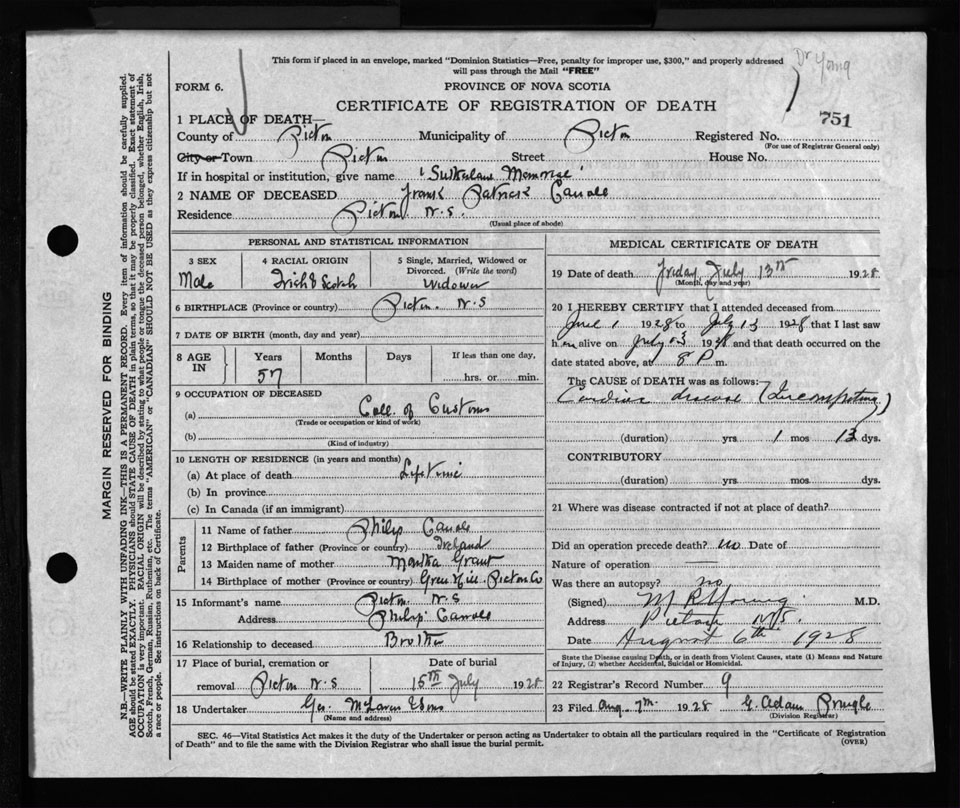 This form if placed in an envelope, marked "Dominion Statistics—Free, penalty for improper use, $300," and properly addressed
will pass through the Mail "FREE"
Dr Young
FORM 6.
PROVINCE OF NOVA SCOTIA
CERTIFICATE OF REGISTRATION OF DEATH
751
1 PLACE OF DEATH—
County of Pictou Municipality of Pictou Registered No.
(For use of Registrar General only)
City or Town Pictou Street House No.
If in hospital or institution, give name "Sutherland Memorial"
2 NAME OF DECEASED Frank Patrick Carroll
Residence Pictou N.S.
(Usual place of abode)
PERSONAL AND STATISTICAL INFORMATION
3 SEX
Male
4 RACIAL ORIGIN
Irish & Scotch
5 Single, Married, Widowed or
Divorced. (Write the word)
Widower
6 BIRTHPLACE (Province or country) Pictou. N.S
7 DATE OF BIRTH (month, day and year)
8 AGE IN
Years
57
Months
Days
If less than one day,
hrs. or min.
9 OCCUPATION OF DECEASED
(a) Coll. of Customs
(Trade or occupation or kind of work)
(b)
(Kind of industry)
10 LENGTH OF RESIDENCE (in years and months)
(a) At place of death Life time
(b) In province
(c) In Canada (if an immigrant)
Parents
11 Name of father Philip Carroll
12 Birthplace of father (Province or country) Ireland
13 Maiden name of mother Martha Grant
14 Birthplace of mother (Province or country) Green Hill. Pictou Co
15 Informant's name Pictou N.S
Address Philip Carroll
16 Relationship to deceased Brother
17 Place of burial, cremation or
removal Pictou N.S
Date of burial
15th July 1928
18 Undertaker Geo. McLaren & Sons
(Name and address)
MEDICAL CERTIFICATE OF DEATH
19 Date of death Friday July 13th 1928
(Month, day and year)
20 I HEREBY CERTIFY that I attended deceased from
June 1 1928 to July 13 1928 that I last saw
him alive on July 13 1928 and that death occurred on the
date stated above, at 8 P m.
The CAUSE of DEATH was as follows:
Cardiac disease
(duration) yrs 1 mos 13 dys.
CONTRIBUTORY
(duration) yrs mos dys.
21 Where was disease contracted if not at place of death?
Did an operation precede death? no Date of
Nature of operation —
Was there an autopsy? no
(Signed) M R Young M.D.
Address Pictou N.S.
Date August 6th 1928
State the Disease causing Death, or in death from Violent Causes, state (1) Means and Nature
of Injury, (2) whether Accidental, Suicidal or Homicidal.
22 Registrar's Record Number 9
23 Filed Aug. 7th. 1928 G. Adam Pringle
(Division Registrar)
SEC. 46—Vital Statistics Act makes it the duty of the Undertaker or person acting as Undertaker to obtain all the particulars required in the "Certificate of Registration
of Death" and to file the same with the Division Registrar who shall issue the burial permit.
(OVER)
MARGIN RESERVED FOR BINDING
N.B.—WRITE PLAINLY WITH UNFADING INK—THIS IS A PERMANENT RECORD. Every item of information should be carefully supplied.
AGE should be stated EXACTLY. PHYSICIANS should STATE CAUSE OF DEATH in plain terms, so that it may be properly classified. Exact statement of
OCCUPATION is very important. RACIAL ORIGIN will be described by stating to what people or tongue the deceased person belonged, whether English, Irish,
Scotch, French, German, Russian, Ruthenian, etc. The terms "AMERICAN" or "CANADIAN" SHOULD NOT BE USED as they express citizenship but not
a race or people. See instructions on back of Certificate.